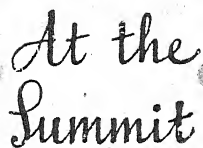 At the
Summit